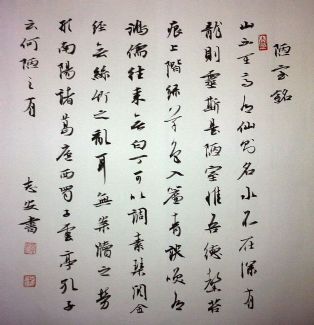 陋室銘
山不在高有仙則名水不在深有
龍則靈斯是陋室惟吾德馨苔
痕上階綠草色入簾青談笑有
鴻儒往來無白丁可以調素琴閱金
經無絲竹之亂耳無案牘之勞
形南陽諸葛廬西蜀子雲亭孔子
云何陋之有
志安書